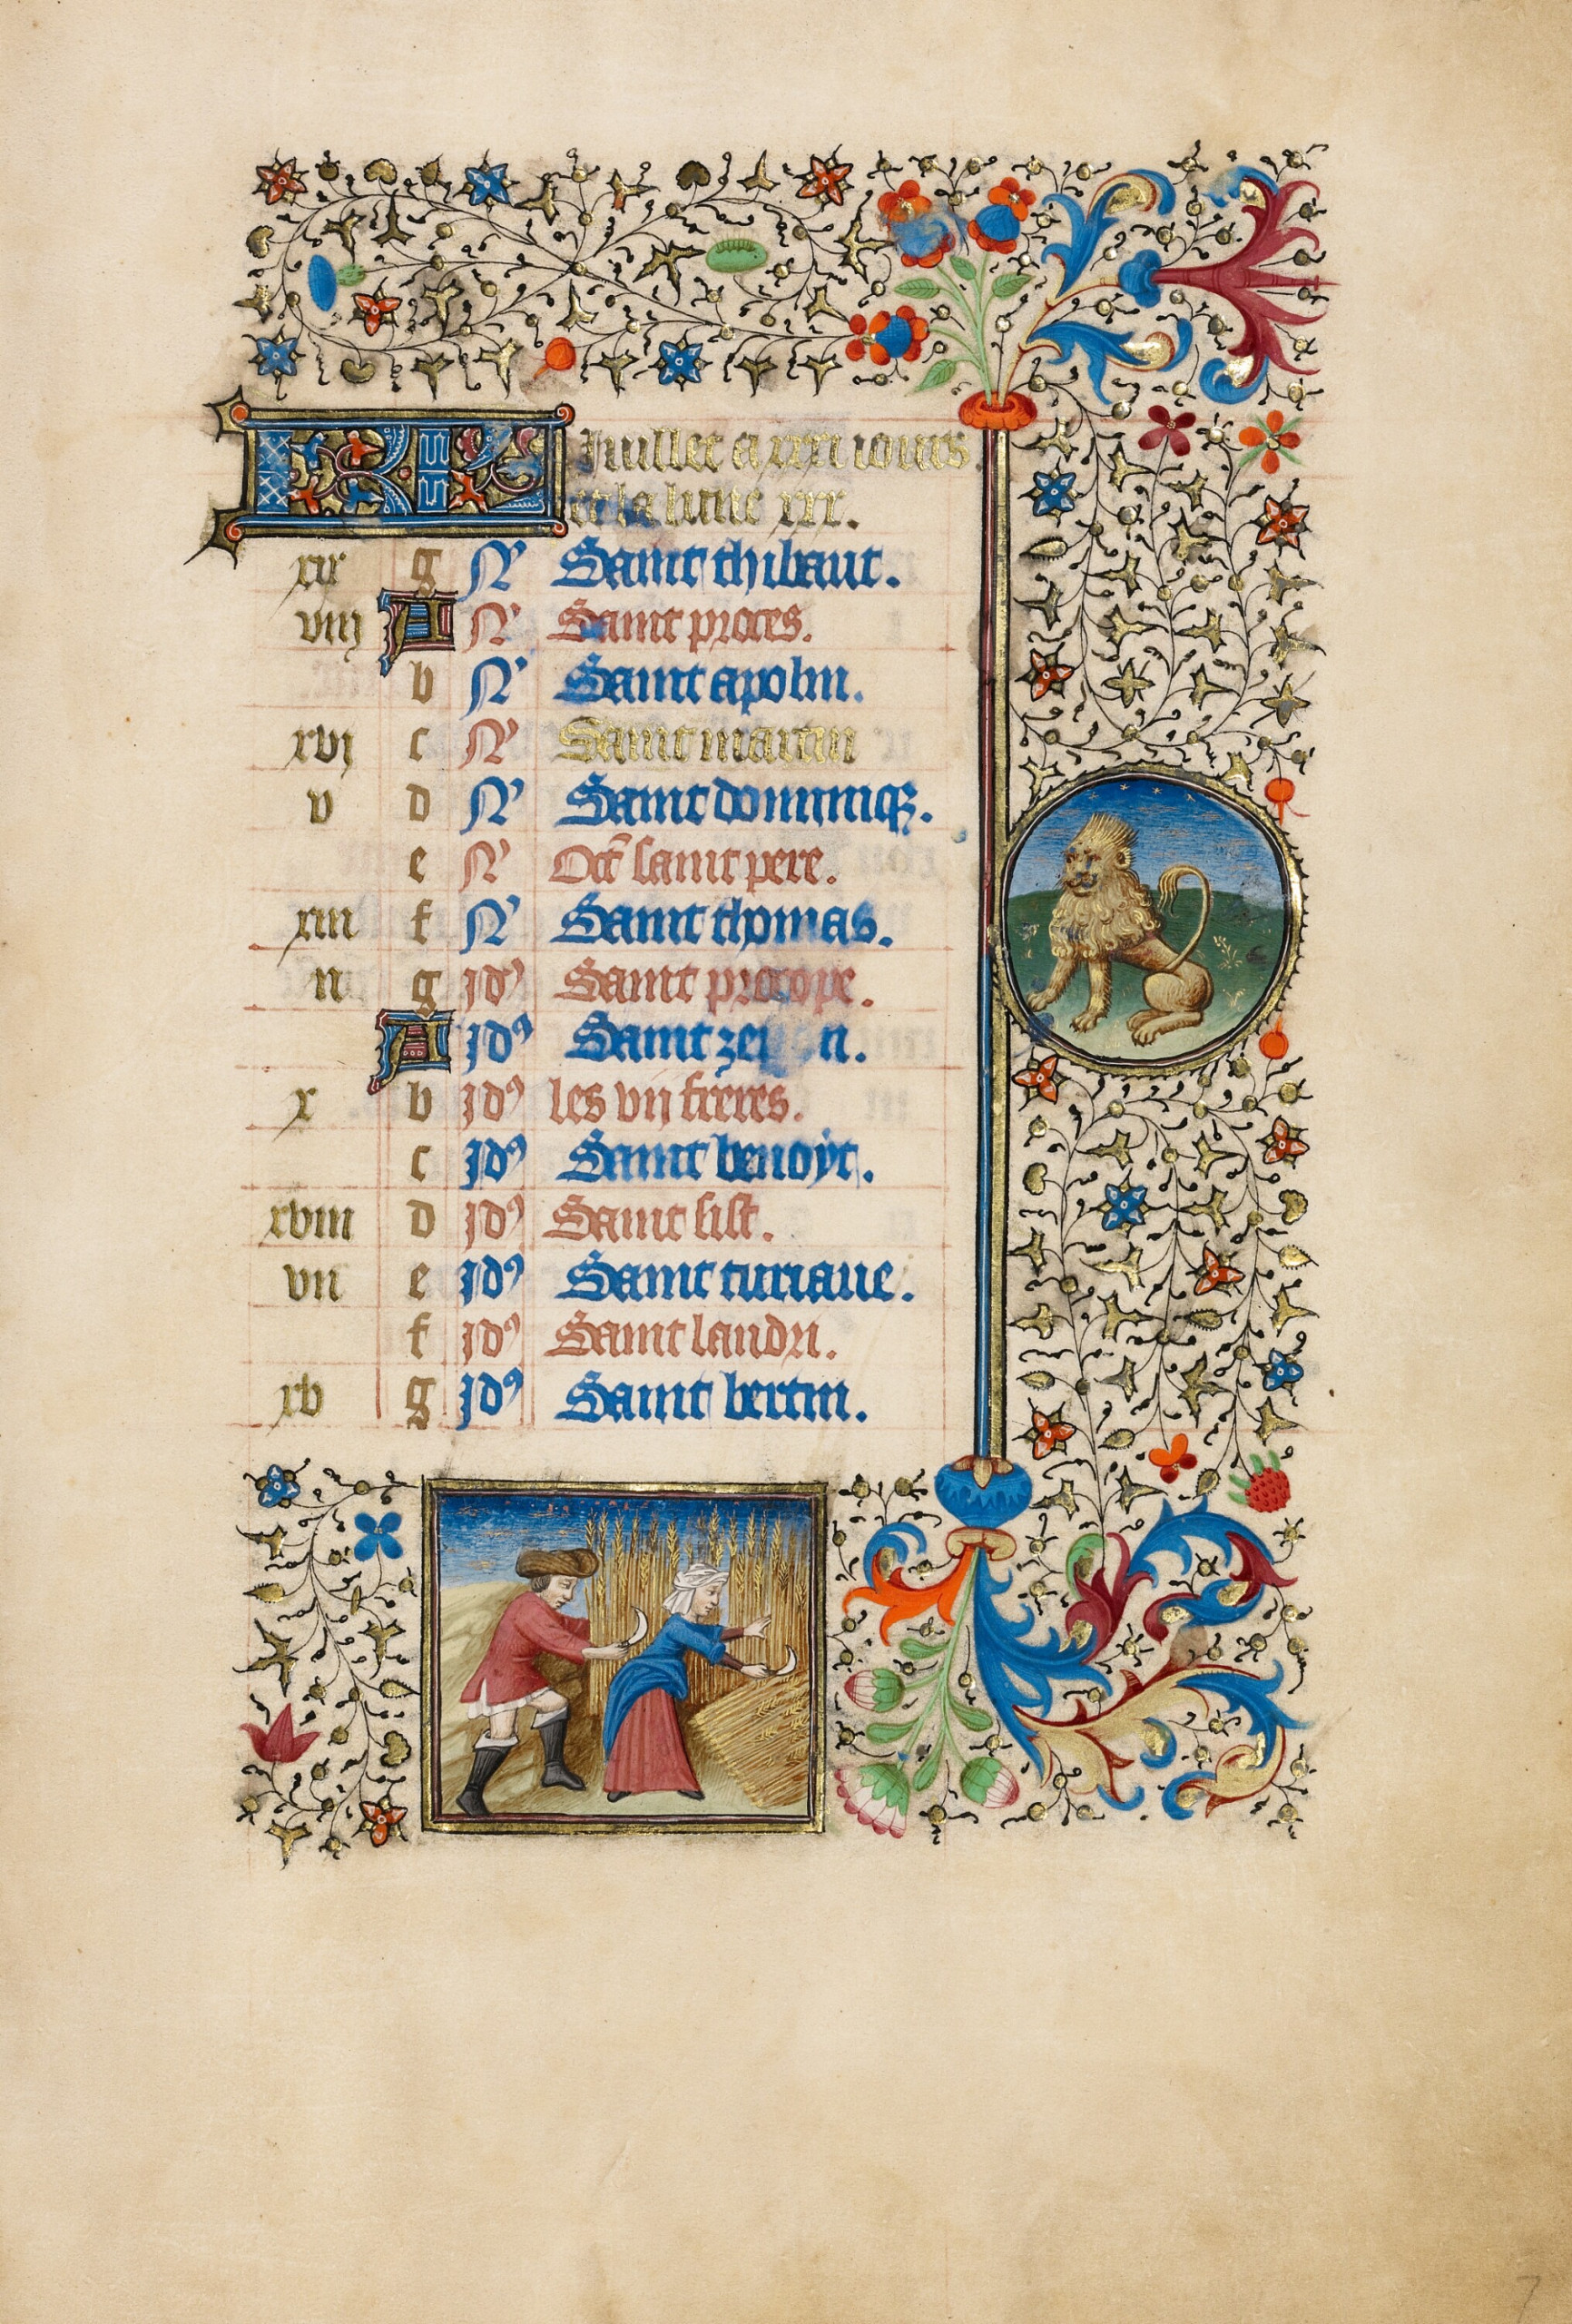 KL Juillet a xxxi iours
et la lune xxx.
xix g N Saint thibaut.
viij A N Saint proces.
b N Saint apolin.
xvj c N Saint martin
v d N Saint dominiqȝ.
e N Oct̄ saint pere.
xiii f N Saint thomas.
ii g id' Saint procope.
A id9 Saint zen n.
x b id9 les vij freres.
c id9 Saint benoyt.
xviii d id9 Saint sist.
vii e id9 Saint turiaue.
f id9 Saint landri.
xv g id9 Saint bertin.
7